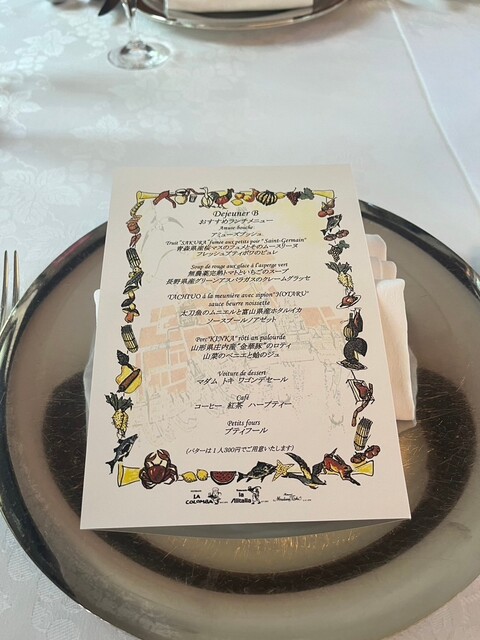 Dejeuner B
おすすめランチメニュー
Amuse bouche
アミューズブッシュ
Truit "SAKURA" fumée aux petits poir "Saint-Germain"
青森県産桜マスのフュメとそのムースリーヌ
フレッシュプティポワのピュレ
Soup de rouge aux glace à l'asperge vert
無農薬完熟トマトといちごのスープ
長野県産グリーンアスパラガスのクレームグラッセ
TACHIUO à la meunière avec sipion "HOTARU"
sauce beurre noissette
太刀魚のムニエルと富山県産ホタルイカ
ソースブールノアゼット
Porc "KINKA" rôti an palourde
山形県庄内産"金華豚"のロティ
山菜のベニエと蛤のジュ
Voiture de dessert
マダム トキ ワゴンデセール
Café
コーヒー 紅茶 ハーブティー
Petits fours
プティフール
(バターは1人300円でご用意いたします)
LA COLOMBA
la Alitalia
Madame Toki